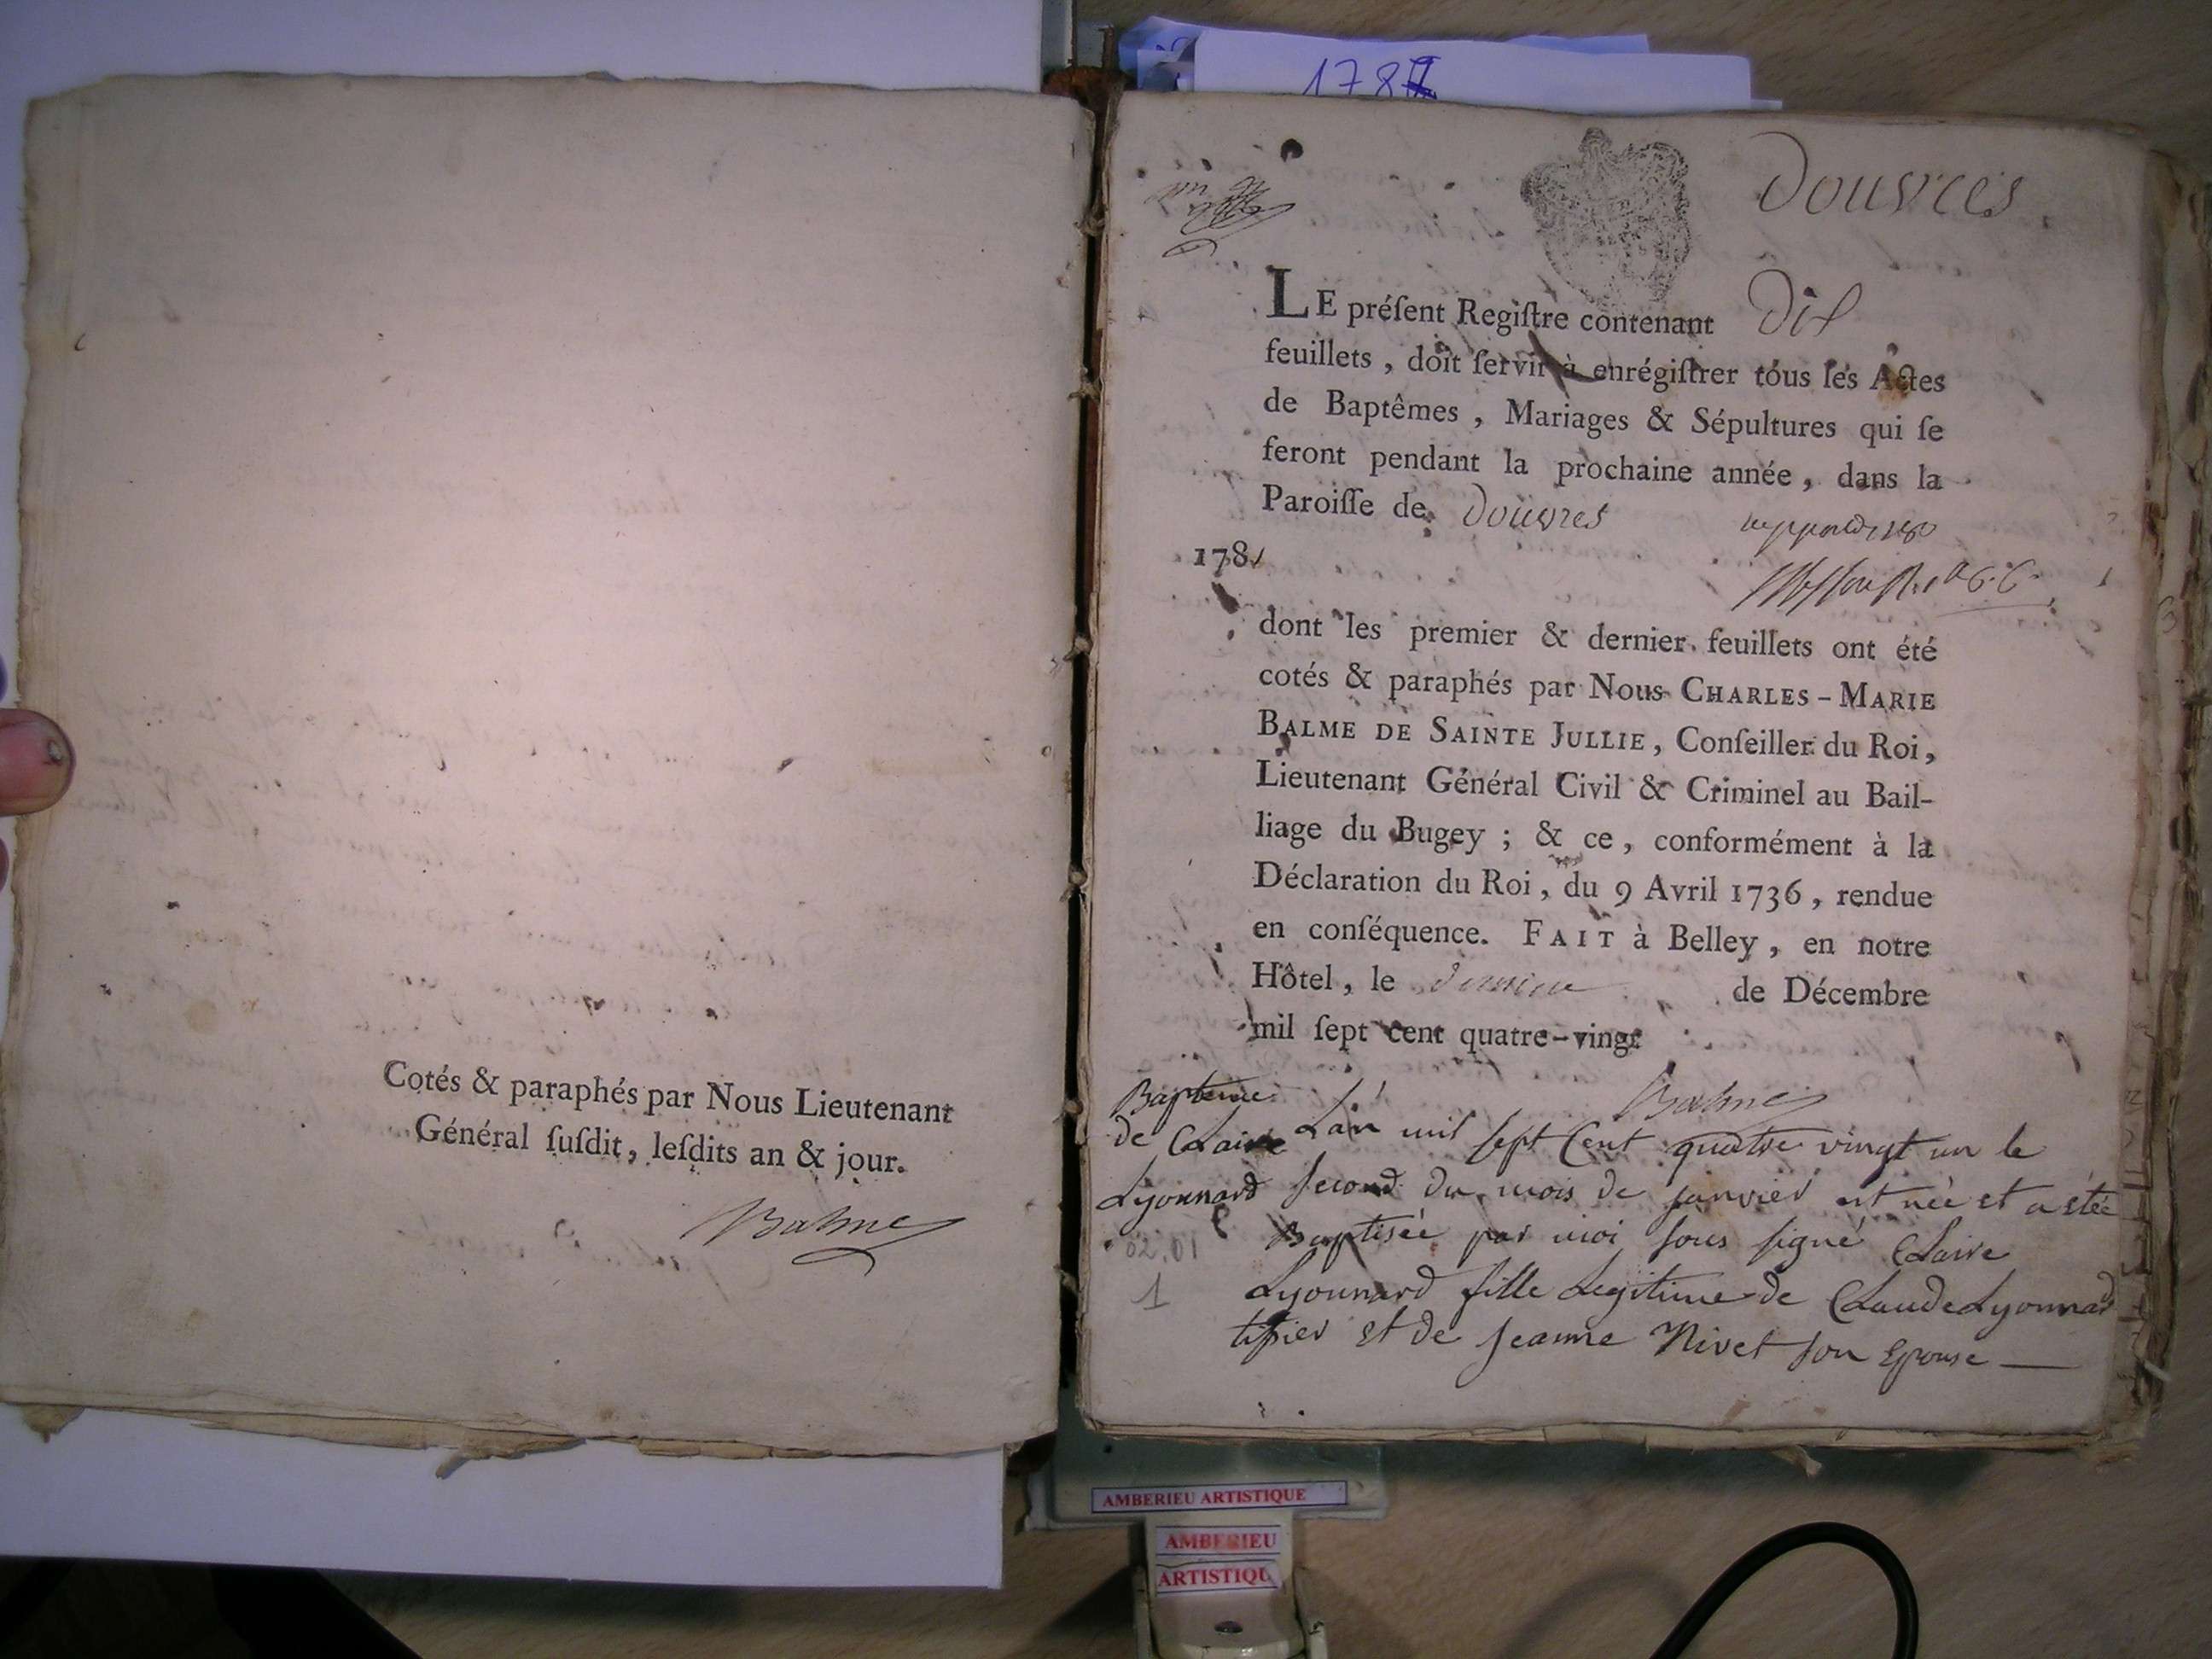 Cotés & paraphés par Nous Lieutenant
Général ſuſdit, leſdits an & jour.
Balme
178
Douvres
LE préſent Regiſtre contenant Dix
feuillets, doit ſervir à enrégiſtrer tous les Actes
de Baptêmes, Mariages & Sépultures qui ſe
feront pendant la prochaine année, dans la
Paroiſſe de Douvres
1781
dont les premier & dernier feuillets ont été
cotés & paraphés par Nous CHARLES-MARIE
BALME DE SAINTE JULLIE, Conſeiller du Roi,
Lieutenant Général Civil & Criminel au Bail-
liage du Bugey; & ce, conformément à la
Déclaration du Roi, du 9 Avril 1736, rendue
en conſéquence. FAIT à Belley, en notre
Hôtel, le de Décembre
mil ſept cent quatre-vingt
Balme
Bapteme
de Claire
Lyonnard
02.01
1
Lan mil sept Cent quatre vingt un le
second du mois de janvier est née et a eté
Baptiseé par moi sous signé Claire
Lyonnard fille Legitime de Claude Lyonnard
tissier et de Jeanne Nivet son Epouse
AMBERIEU ARTISTIQUE
AMBERIEU
ARTISTIQU